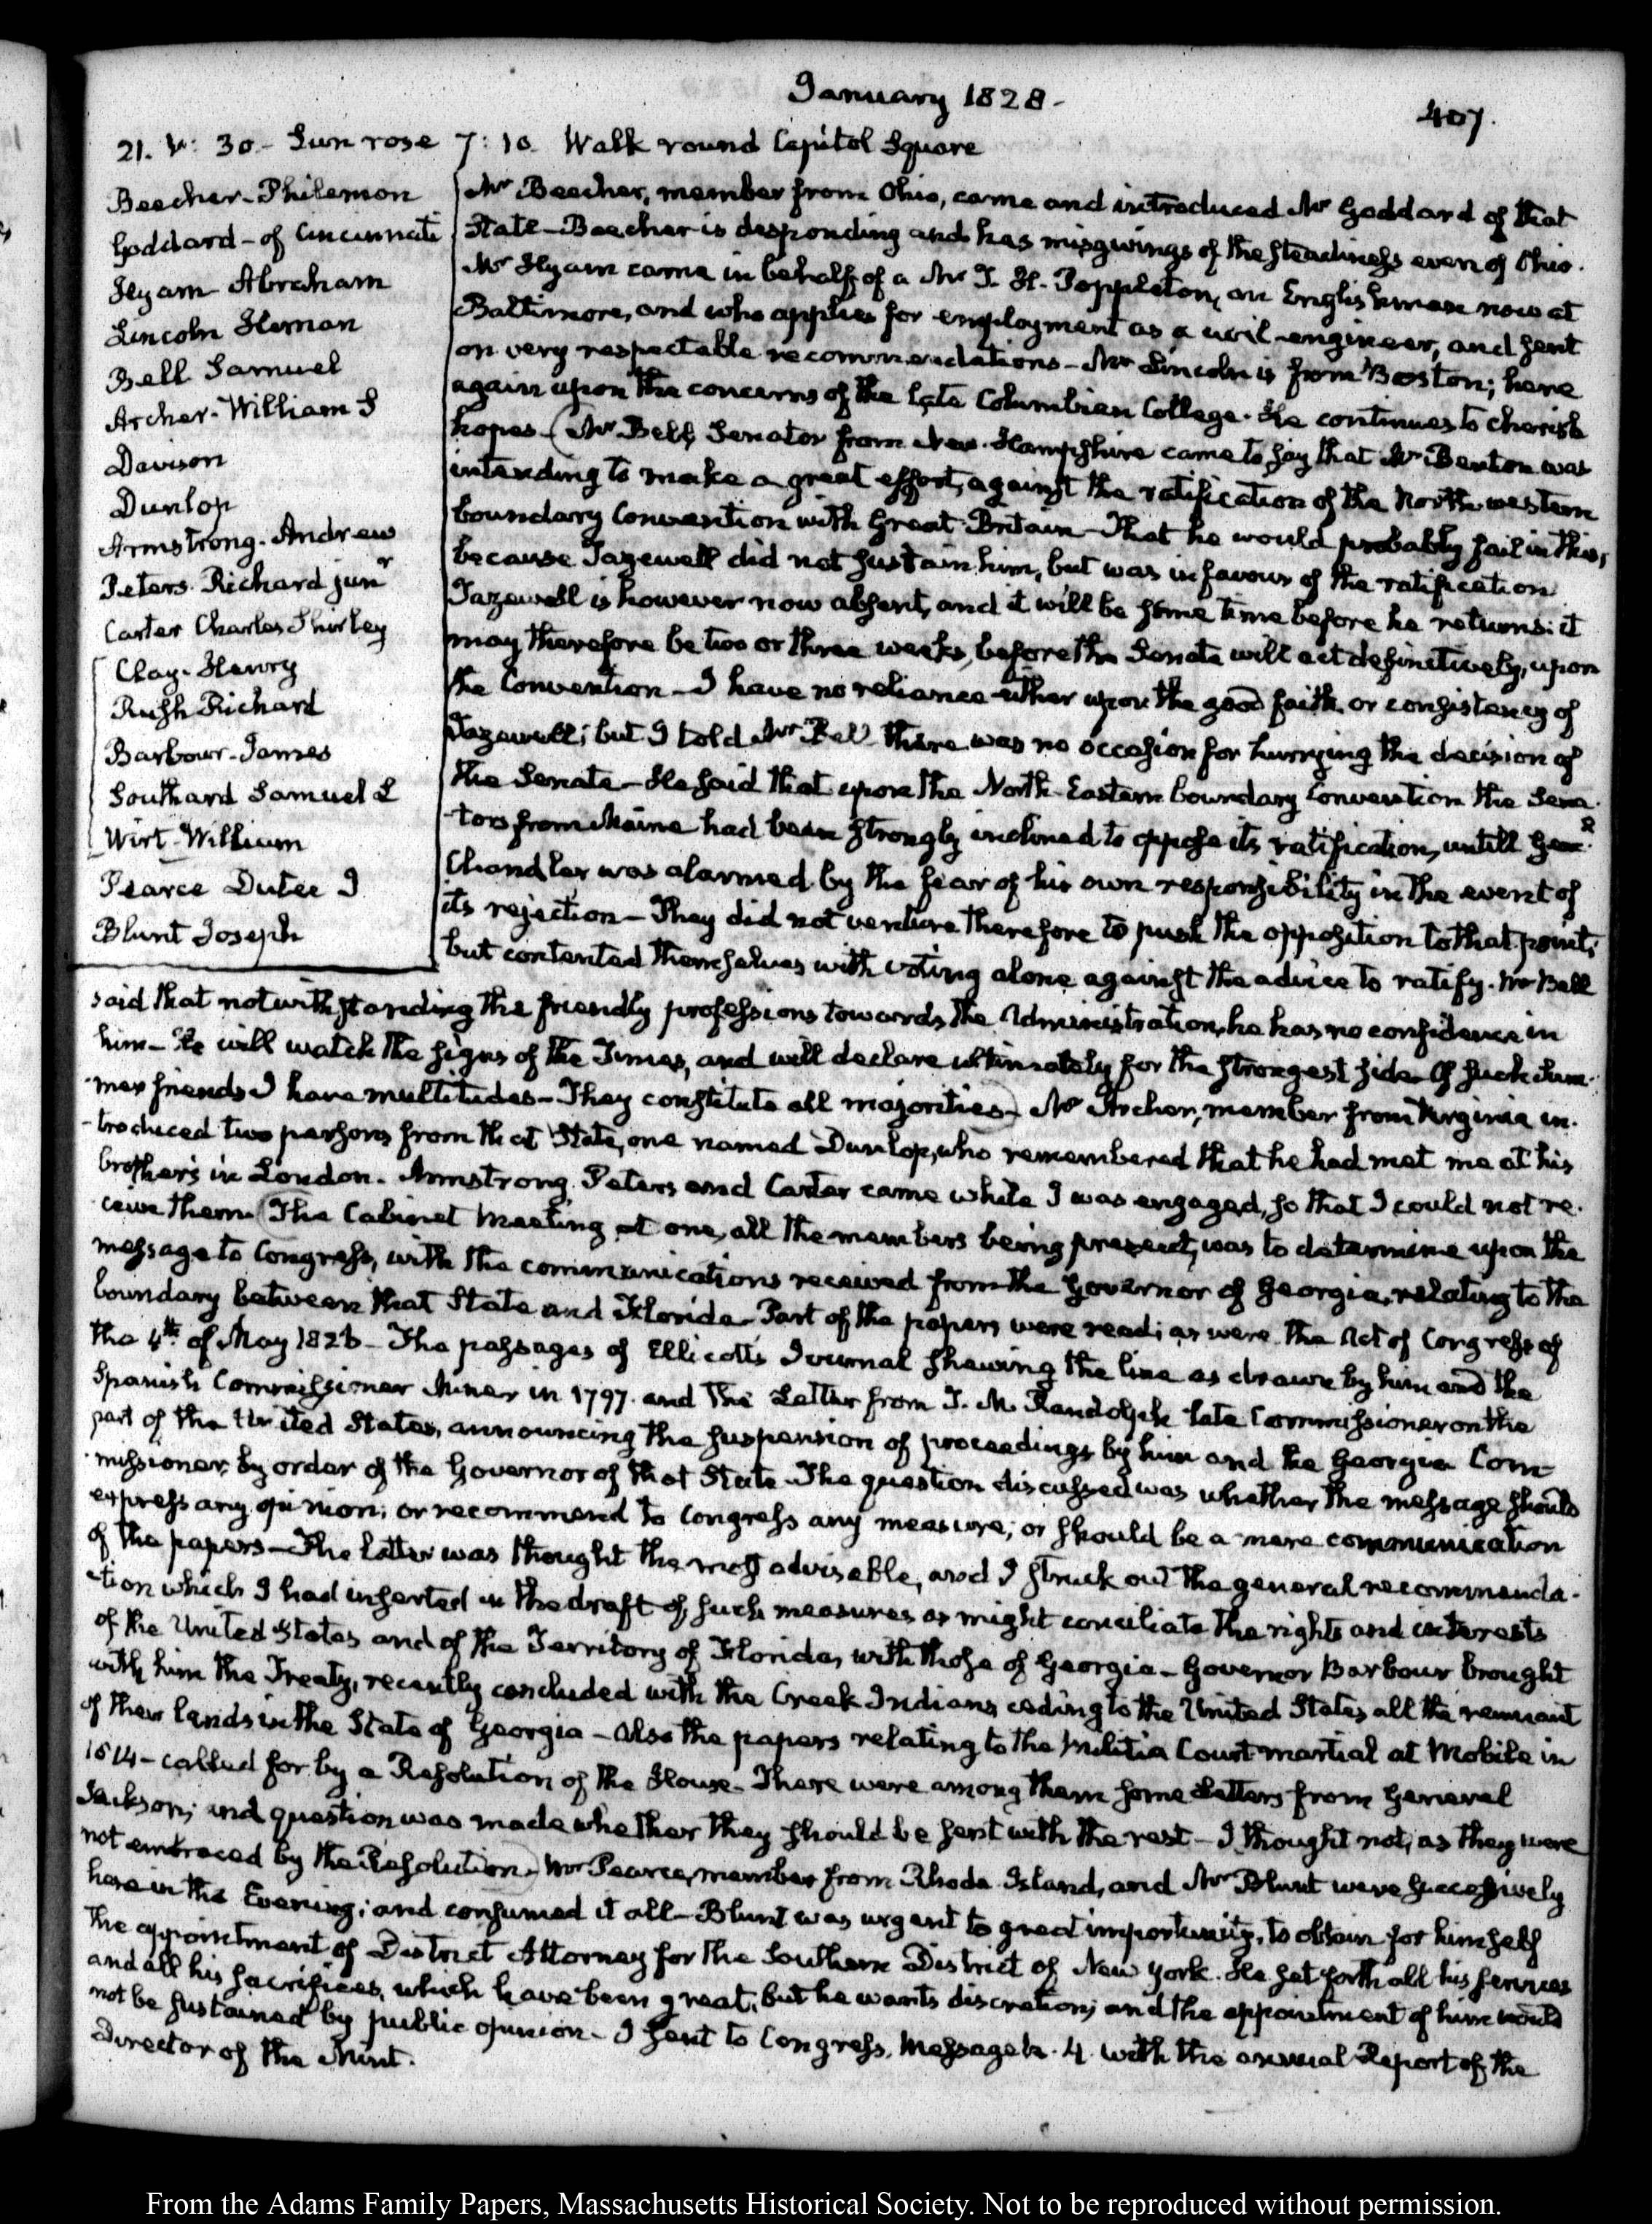 January 1828-
407.
21. V: 30- Sun rose 7:10. Walk round Capitol Square
Beecher-Philemon
Goddard-of Cincinnati
Hyam Abraham
Lincoln Heman
Bell Samuel
Archer-William S
Davison
Dunlop
Armstrong-Andrew
Peters Richard junr
Carter Charles Shirley
Clay-Henry
Rush Richard
Barbour-James
Southard Samuel L
Wirt-William
Pearce Dutee J
Blunt Joseph
Mr Beecher, member from Ohio, came and introduced Mr Goddard of that
State-Beecher is desponding and has misgivings of the steadiness even of Ohio.
Mr Hyam came in behalf of a Mr T. H. Poppleton, an Englishman now at
Baltimore, and who applies for employment as a civil-engineer, and sent
on very respectable recommendations-Mr Lincoln is from Boston; here
again upon the concerns of the late Columbian College. He continues to cherish
hopes-(Mr Bell, Senator from New-Hampshire came to say that Mr Benton was
intending to make a great effort, against the ratification of the North-western
boundary Convention with Great-Britain-That he would probably fail in this,
because Tazewell did not sustain him, but was in favour of the ratification
Tazewell is however now absent, and it will be some time before he returns: it
may therefore be two or three weeks, before the Senate will act definitively, upon
the Convention-I have no reliance either upon the good faith, or consistency of
Tazewell; but I told Mr Bell there was no occasion for hurrying the decision of
the Senate-He said that upon the North-Eastern boundary Convention the Sena-
-tors from Maine had been strongly inclined to oppose its ratification, untill Genl
Chandler was alarmed by the fear of his own responsibility in the event of
its rejection-They did not venture therefore to push the opposition to that point;
but contented themselves with voting alone against the advice to ratify. Mr Bell
said that notwithstanding the friendly professions towards the Administration, he has no confidence in
him-He will watch the signs of the Times, and will declare ultimately for the strongest side-Of such Sum-
-mer friends I have multitudes-They constitute all majorities) Mr Archer, member from Virginia in-
-troduced two persons from that State, one named Dunlop, who remembered that he had met me at his
brother's in London. Armstrong, Peters and Carter came while I was engaged, so that I could not re-
-ceive them (The Cabinet Meeting at one, all the members being present, was to determine upon the
message to Congress, with the communications received from the Governor of Georgia, relating to the
boundary between that State and Florida-Part of the papers were read; as were the Act of Congress of
the 4th of May 1826-The passages of Ellicott's Journal shewing the line as drawn by him and the
Spanish Commissioner Miner in 1797. and the Letter from T. M. Randolph late Commissioner on the
part of the United States, announcing the suspension of proceedings by him and the Georgia Com-
-missioner, by order of the Governor of that State-The question discussed was whether the message should
express any opinion; or recommend to Congress any measure; or should be a mere communication
of the papers-The latter was thought the most advisable, and I struck out the general recommenda-
-tion which I had inserted in the draft of, such measures as might conciliate the rights and interests
of the United States and of the Territory of Florida, with those of Georgia-Governor Barbour brought
with him the Treaty, recently concluded with the Creek Indians ceding to the United States all the remnant
of their lands in the State of Georgia-Also the papers relating to the Militia Court-martial at Mobile in
1814-called for by a Resolution of the House-There were among them some Letters from General
Jackson; and question was made whether they should be sent with the rest-I thought not, as they were
not embraced by the Resolution) Mr Pearce, member from Rhode-Island, and Mr Blunt were successively
here in the Evening; and consumed it all-Blunt was urgent to great importunity, to obtain for himself
the appointment of District Attorney for the Southern District of New York. He set forth all his services
and all his sacrifices, which have been great; but he wants discretion; and the appointment of him would
not be sustained by public opinion-I sent to Congress, Message N. 4. with the annual Report of the
Director of the Mint.
From the Adams Family Papers, Massachusetts Historical Society. Not to be reproduced without permission.